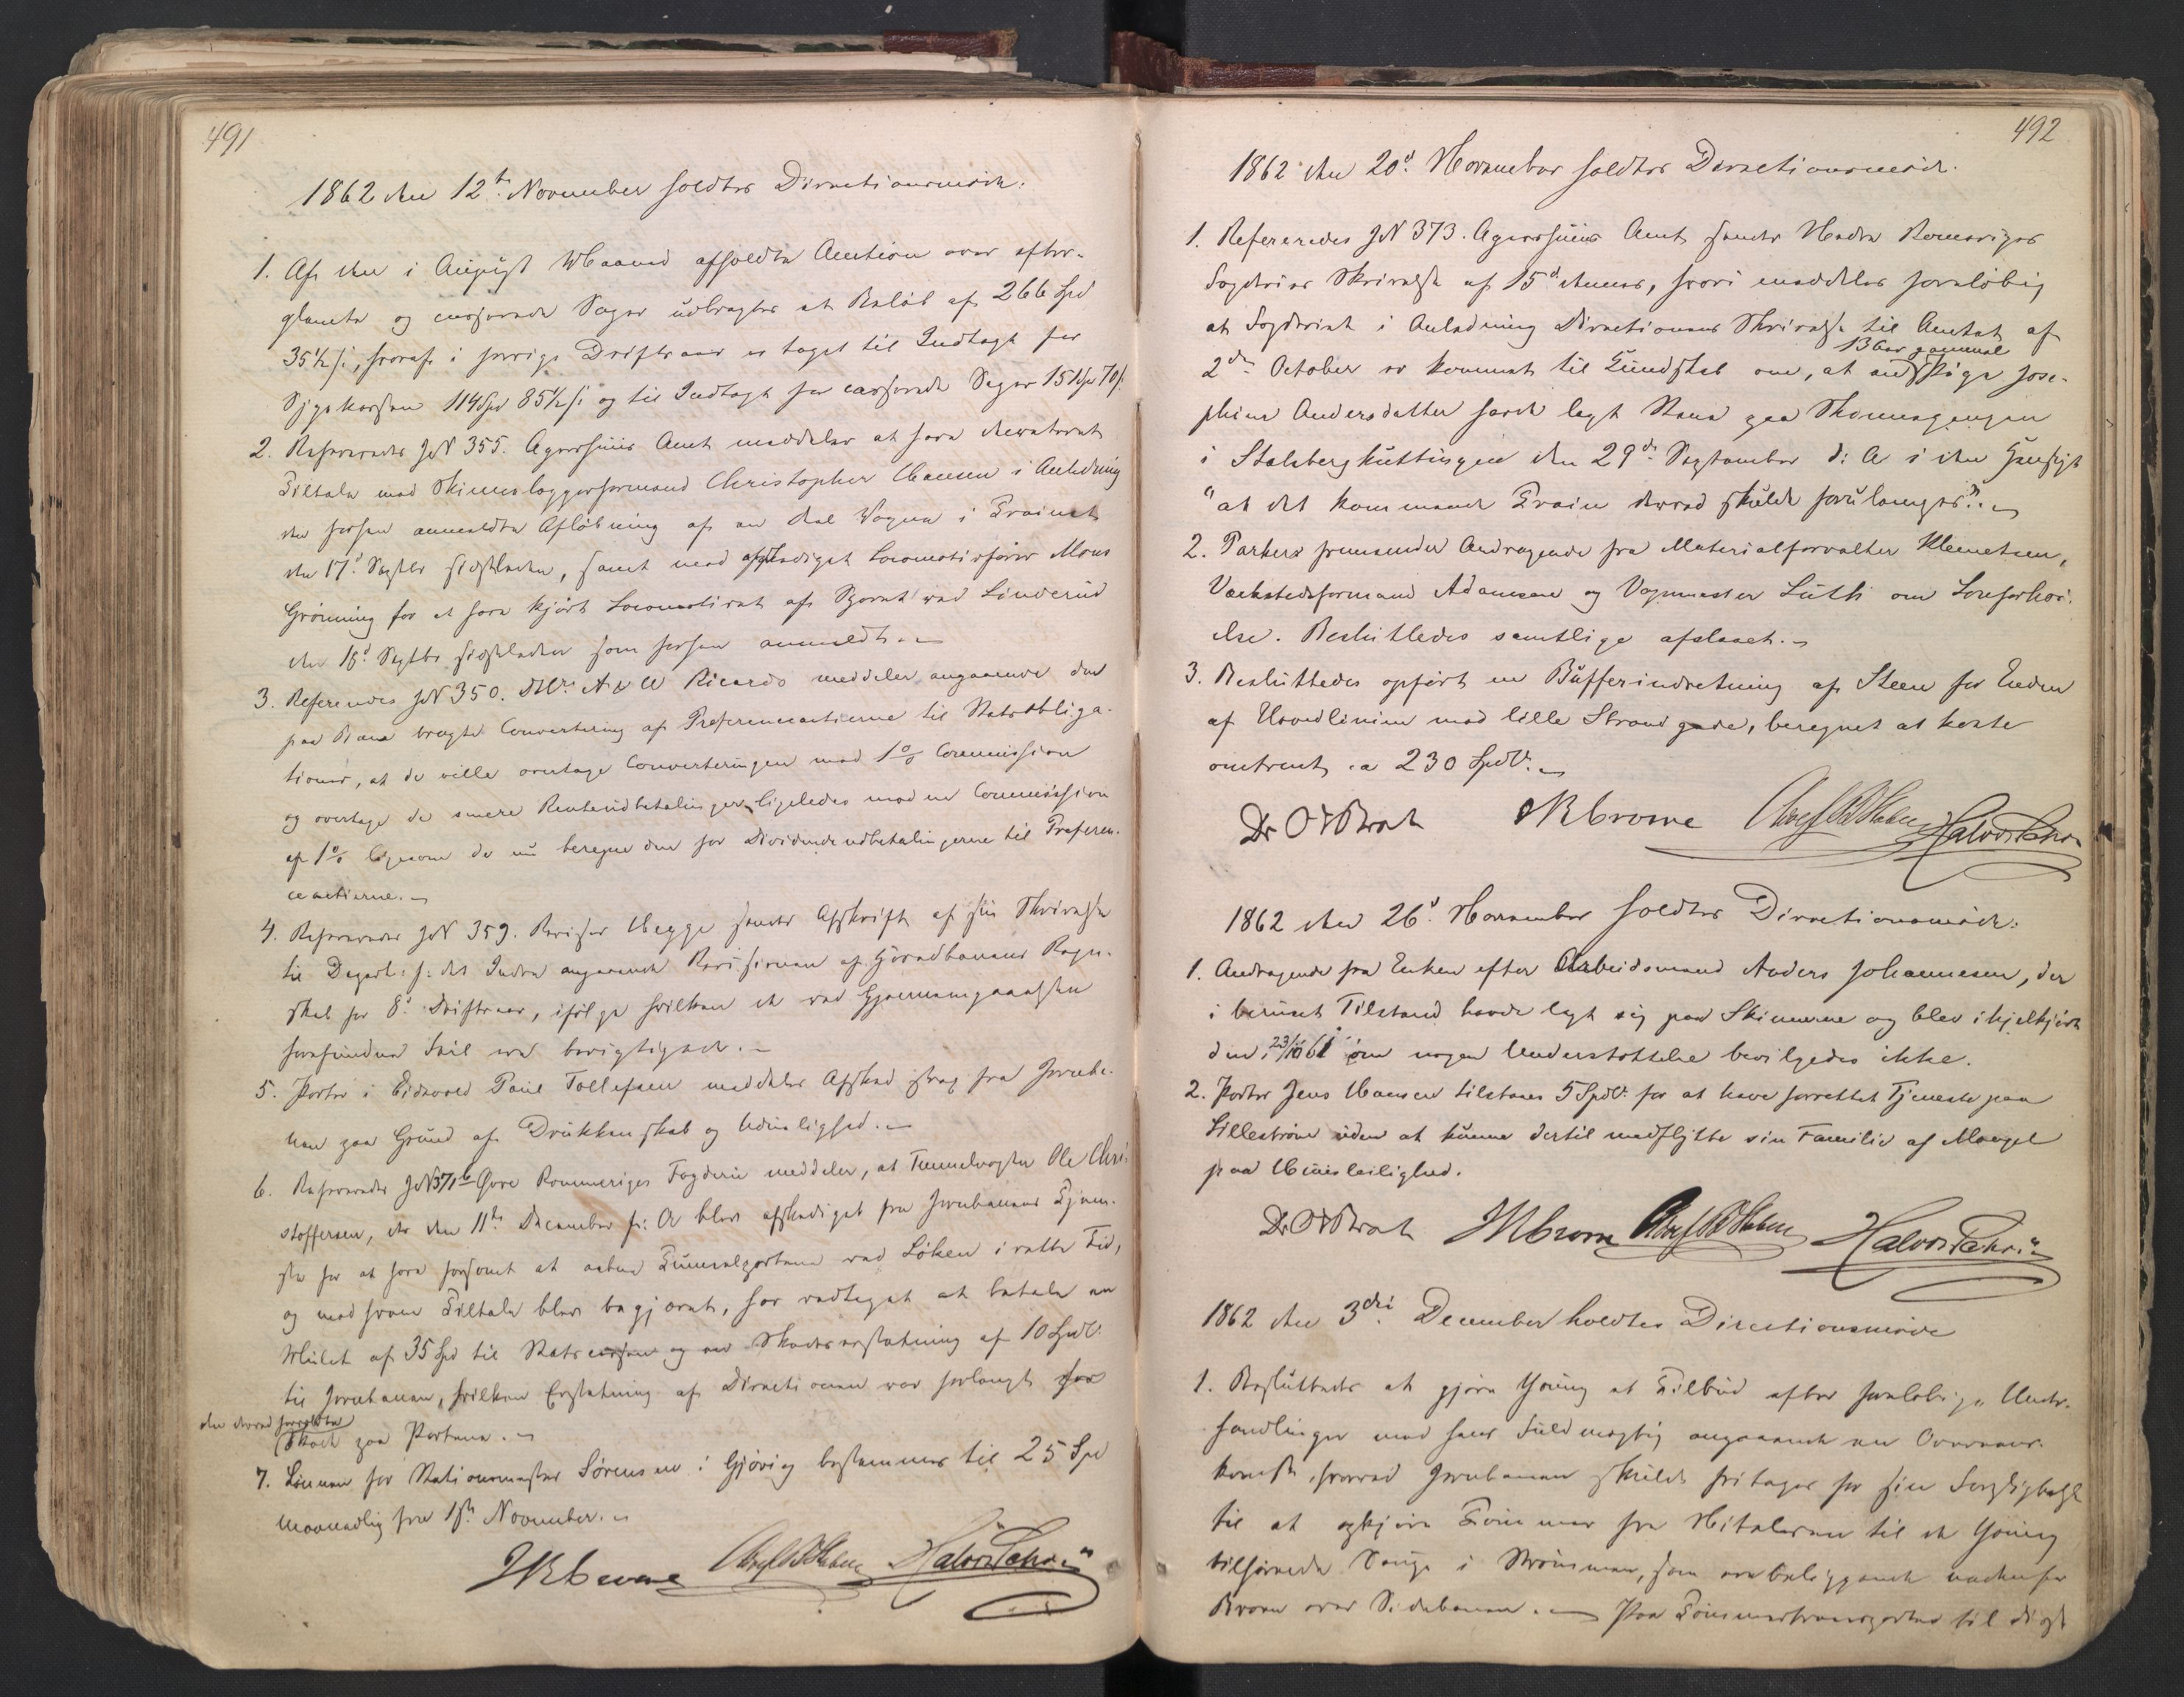 491
1862 den 12te November holdtes Directionsmöde.
1. Af den i August Maaned afholdte Auction over efter-
glemte og casserede Sager udbragtes et Beløb af 266 Spd
35½ s, hvoraf i forrige Driftsaar er taget til Indtægt for
Sygekassen 114 Spd 85½ s og til Indtægt for casserede Sager 151 Spd 70 s.
2. Refereredes JN 355. Agershuus Amt meddeler at have decreteret
Tiltale mod Skinnelæggerformand Christopher Hansen i Anledning
den herfra anmeldte Afløbning af en Deel Vogne i Trainet
den 17d Septbr sidstleden, samt mod afskediget Locomotivfører Mons
Grönning for at have kjört Locomotivet af Sporet ved Linderud
den 18d Septbr sidstleden som herfra anmeldt.
3. Refereredes JN 350. Mrs A & W Ricardo meddeler angaaende den
paa Bane bragte Convertering af Preferenceactierne til Statsobliga-
tioner, at de ville overtage Converteringen mod 1% Commission
og overtage de senere Renteudbetalinger ligeledes mod en Commission
af 1% ligesom de nu beregne den for Dividendeudbetalingerne til Preferen-
ceactierne.
4. Refereredes JN 359. Revisor Hegge sender Afskrift af sin Skrivelse
til Depart: f: det Indre angaaende Revisionen af Hovedbanens Regn-
skab for 8d Driftsaar, ifölge hvilken de ved Gjennemgaaelsen
forefundne Feil ere berigtigede.
5. Porter i Eidsvold Paul Tollefsen meddeles Afsked strax fra Jernba-
nen paa Grund af Drukkenskab og Uduelighed.
6. Refereredes JN 371b Övre Rommeriges Fogderie meddeler, at Tunnelvogter Ole Chri-
stoffersen, der den 11te December f: A blev afskediget fra Jernbanens Tjene-
ste for at have forsömt at aabne Tunnelportene ved Löken i rette Tid,
og mod hvem Tiltale blev begjæret, har vedtaget at betale en
Mulct af 35 Spd til Statscassen og en Skadeserstatning af 10 Spd
til Jernbanen, hvilken Erstatning af Directionen var forlangt for
den derved forvoldte
Skade paa Portene.
7. Lönnen for Stationsmester Sörensen i Gjövig bestemmes til 25 Spd
Maanedlig fra 1ste November.
492
1862 den 20d November holdtes Directionsmöde.
1. Refereredes JN 373. Agershuus Amt sender Nedre Romeriges
Fogderies Skrivelse af 15d dennes, hvori meddeles foreløbig
at Fogderiet i Anledning Directionens Skrivelse til Amtet af
13 Aar gammel
2den October er kommet til Kundskab om, at en Pige Jose-
phine Andersdatter havde lagt Steen paa Skinnegangen
i Stalsbergkuttingen den 29de September d: A i den Hensigt
"at det kommende Train derved skulde forulempes".
2. Parkers fremsender Andragende fra Materialforvalter Klemetsen,
Værkstedsformand Adamsen og Vognmester Lüth om Lönforhöi-
else. Besluttedes samtlige afslaaet.
3. Besluttedes opfört en Bufferindretning af Steen for Enden
af Hovedlinien mod lille Strandgade, beregnet at koste
omtrent ca 230 Spd.
1862 den 26d November holdtes Directionsmöde:
1. Andragende fra Enken efter Arbeidsmand Anders Johannesen, der
i beruset Tilstand havde lagt sig paa Skinnerne og blev ihjelkjört
den 23/10 61 om nogen Understöttelse bevilgedes ikke.
2. Porter Jens Hansen tilstaaes 5 Spd for at have forrettet Tjeneste paa
Lilleström uden at kunne dertil medflytte sin Familie af Mangel
paa Huusleilighed.
1862 den 3die December holdtes Directionsmöde
1. Besluttedes at gjöre Young et Tilbud efter foreløbige Under-
handlinger med hans Fuldmægtig angaaende en Overeens-
komst, hvorved Jernbanen skulde fritages for sin Forpligtelse
til at opkjöre Tömmer fra Nitelven til de Young
tilhörende Sauge i Strömmen, som ere beliggende nedenfor
Broen over Sidebanen. Paa Tömmertransporten til disse